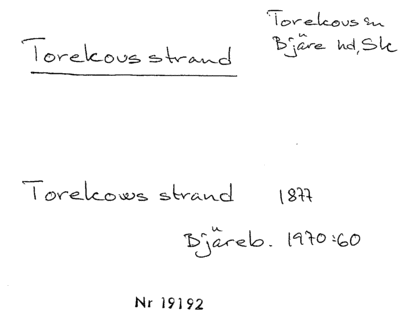 Torekovs strand
Torekovs sn
Bjäre hd, Sk
Torekows strand 1877
Bjäreb. 1970:60
Nr 19192